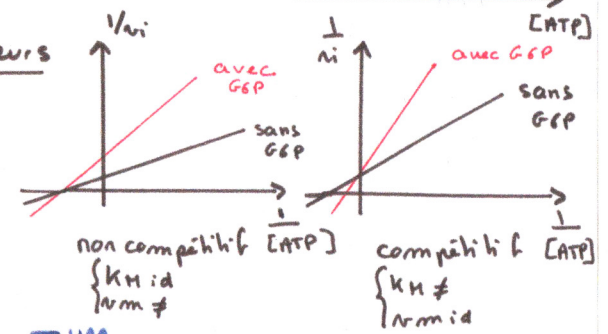 [ATP]
eurs
1/vi
avec
G6P
sans
G6P
1
[ATP]
non compétitif
{ KM id
vm ≠
1
vi
avec G6P
sans
G6P
1
[ATP]
compétitif
{ KM ≠
vm id